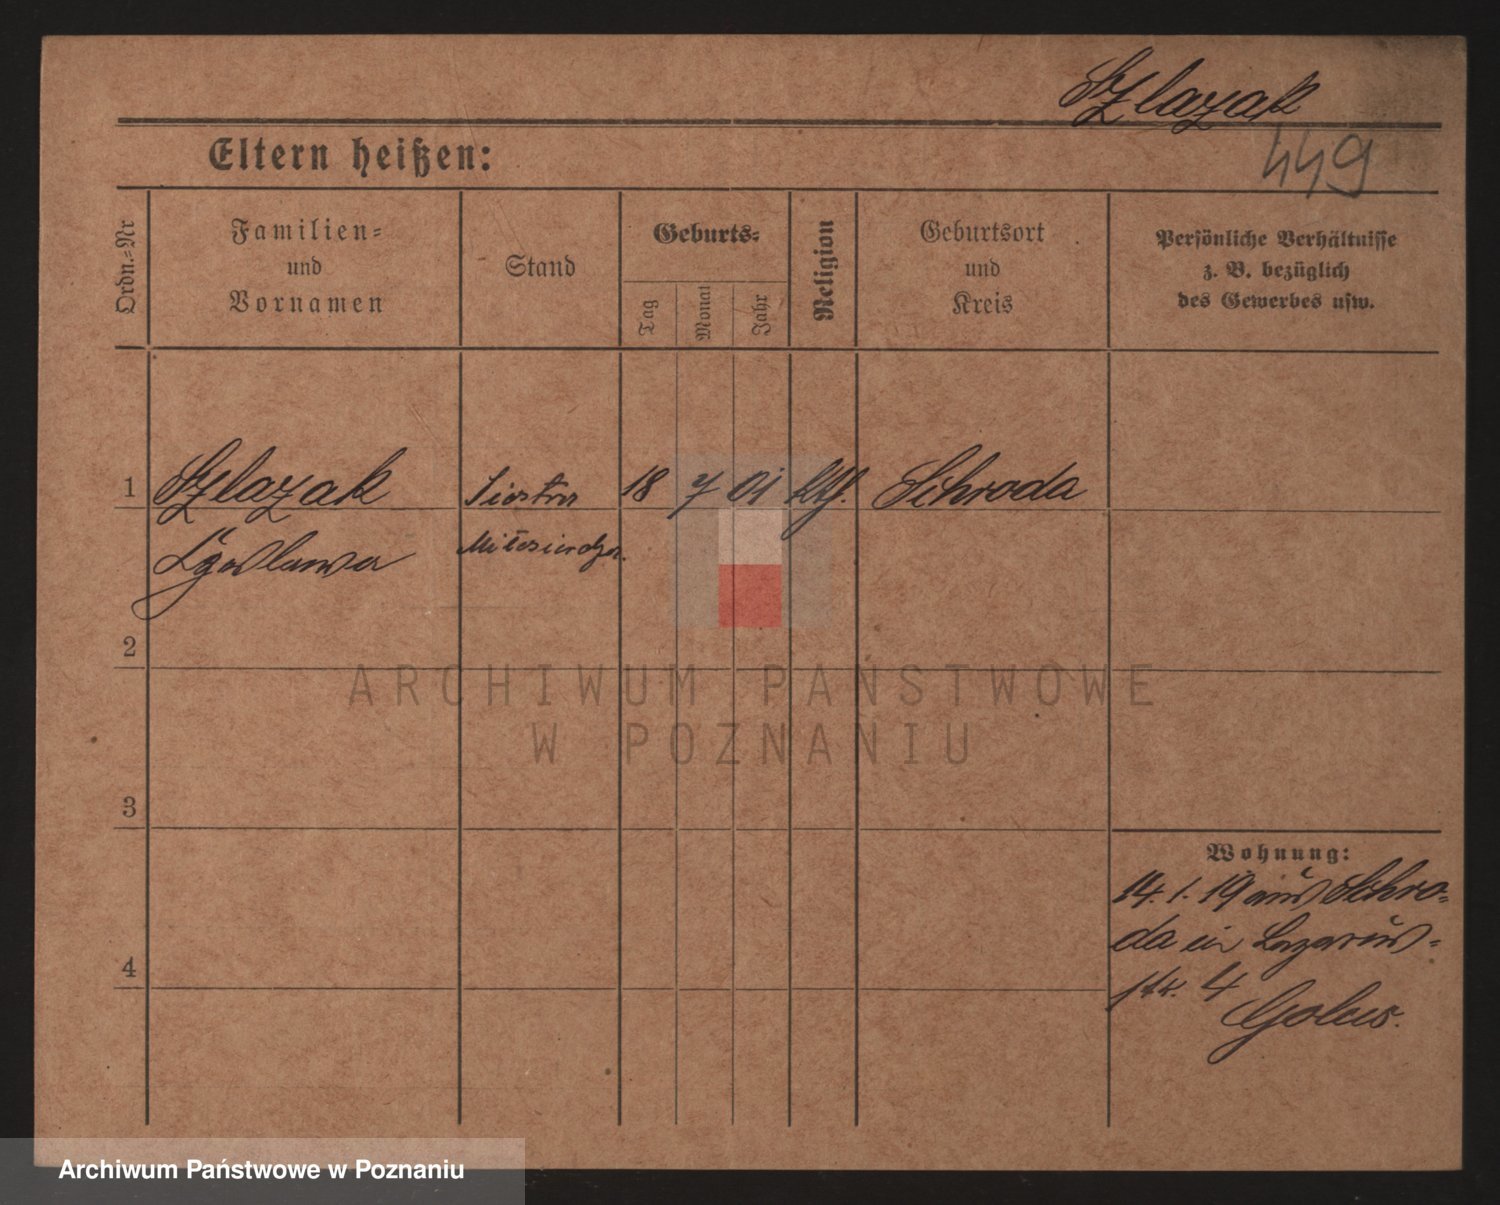 Szlazak
449
Eltern heißen:
Ordn.-Nr
Familien-
und
Vornamen
Stand
Geburts-
Tag
Monat
Jahr
Religion
Geburtsort
und
Kreis
Persönliche Verhältnisse
z. B. bezüglich
des Gewerbes usw.
1 Szlazak Siostra 18 7 01 Schroda
Miłosierdzia.
2
ARCHIWUM PAŃSTWOWE
W POZNANIU
3
4
Wohnung:
14. 1. 19 aus Schro-
da in Lazarus-
str. 4
Archiwum Państwowe w Poznaniu